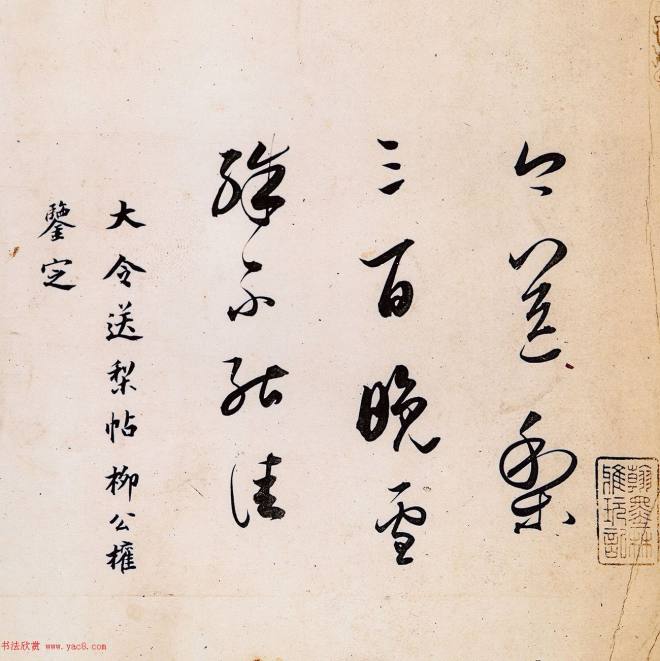 翰墨林
今送梨
三百晚雪
殊不能佳
大令送梨帖柳公權
鑒定
书法欣赏 www.yac8.com